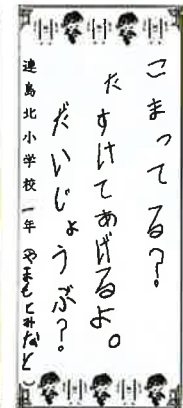 こまってる?
たすけてあげるよ。
だいじょうぶ?
連島北小学校 一年 やまもとみなと